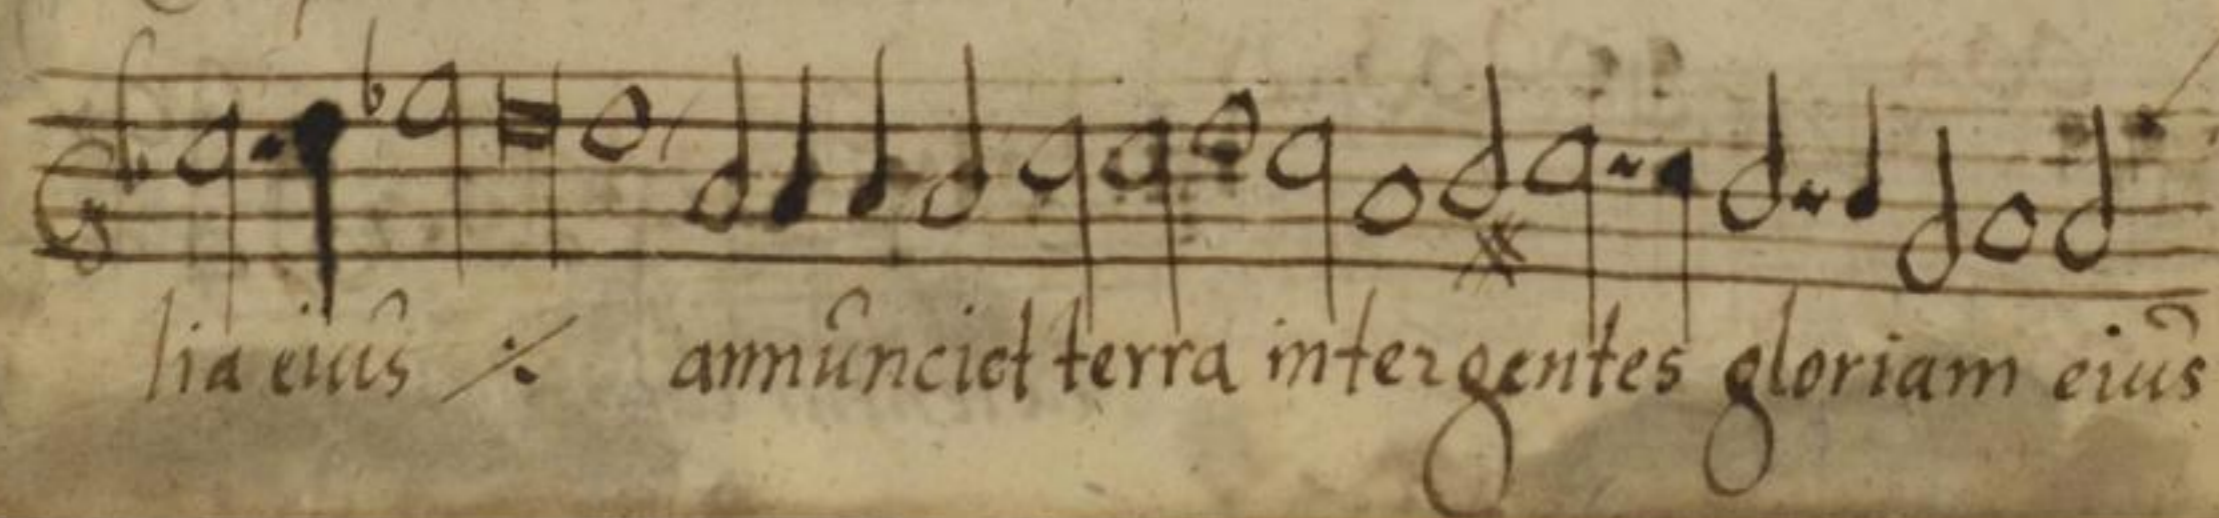 lia eiũs ⁒ annũnciet terra inter gentes gloriam eiũs